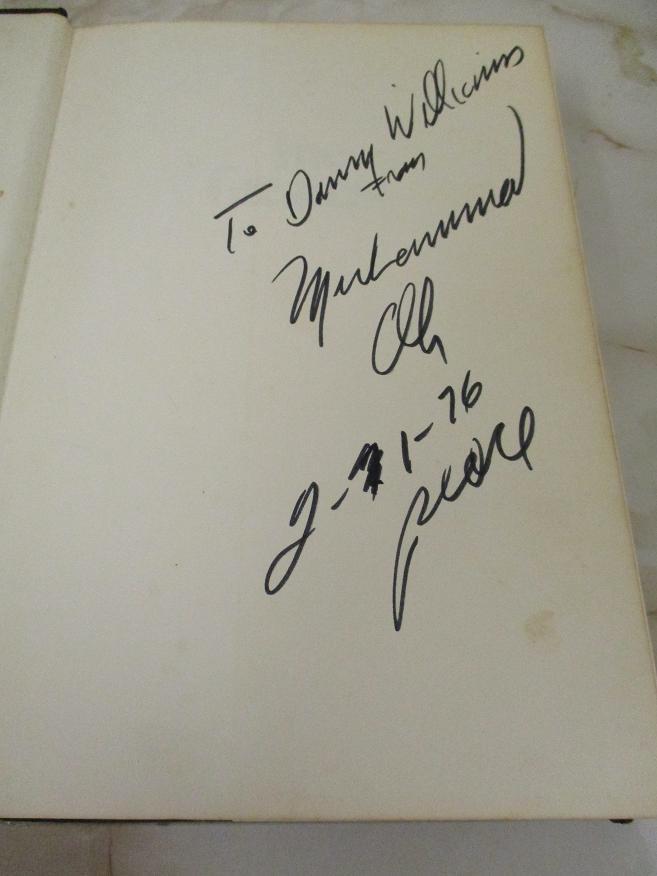 To Danny Williams
From
Muhammad
Ali
2-1-76
peace